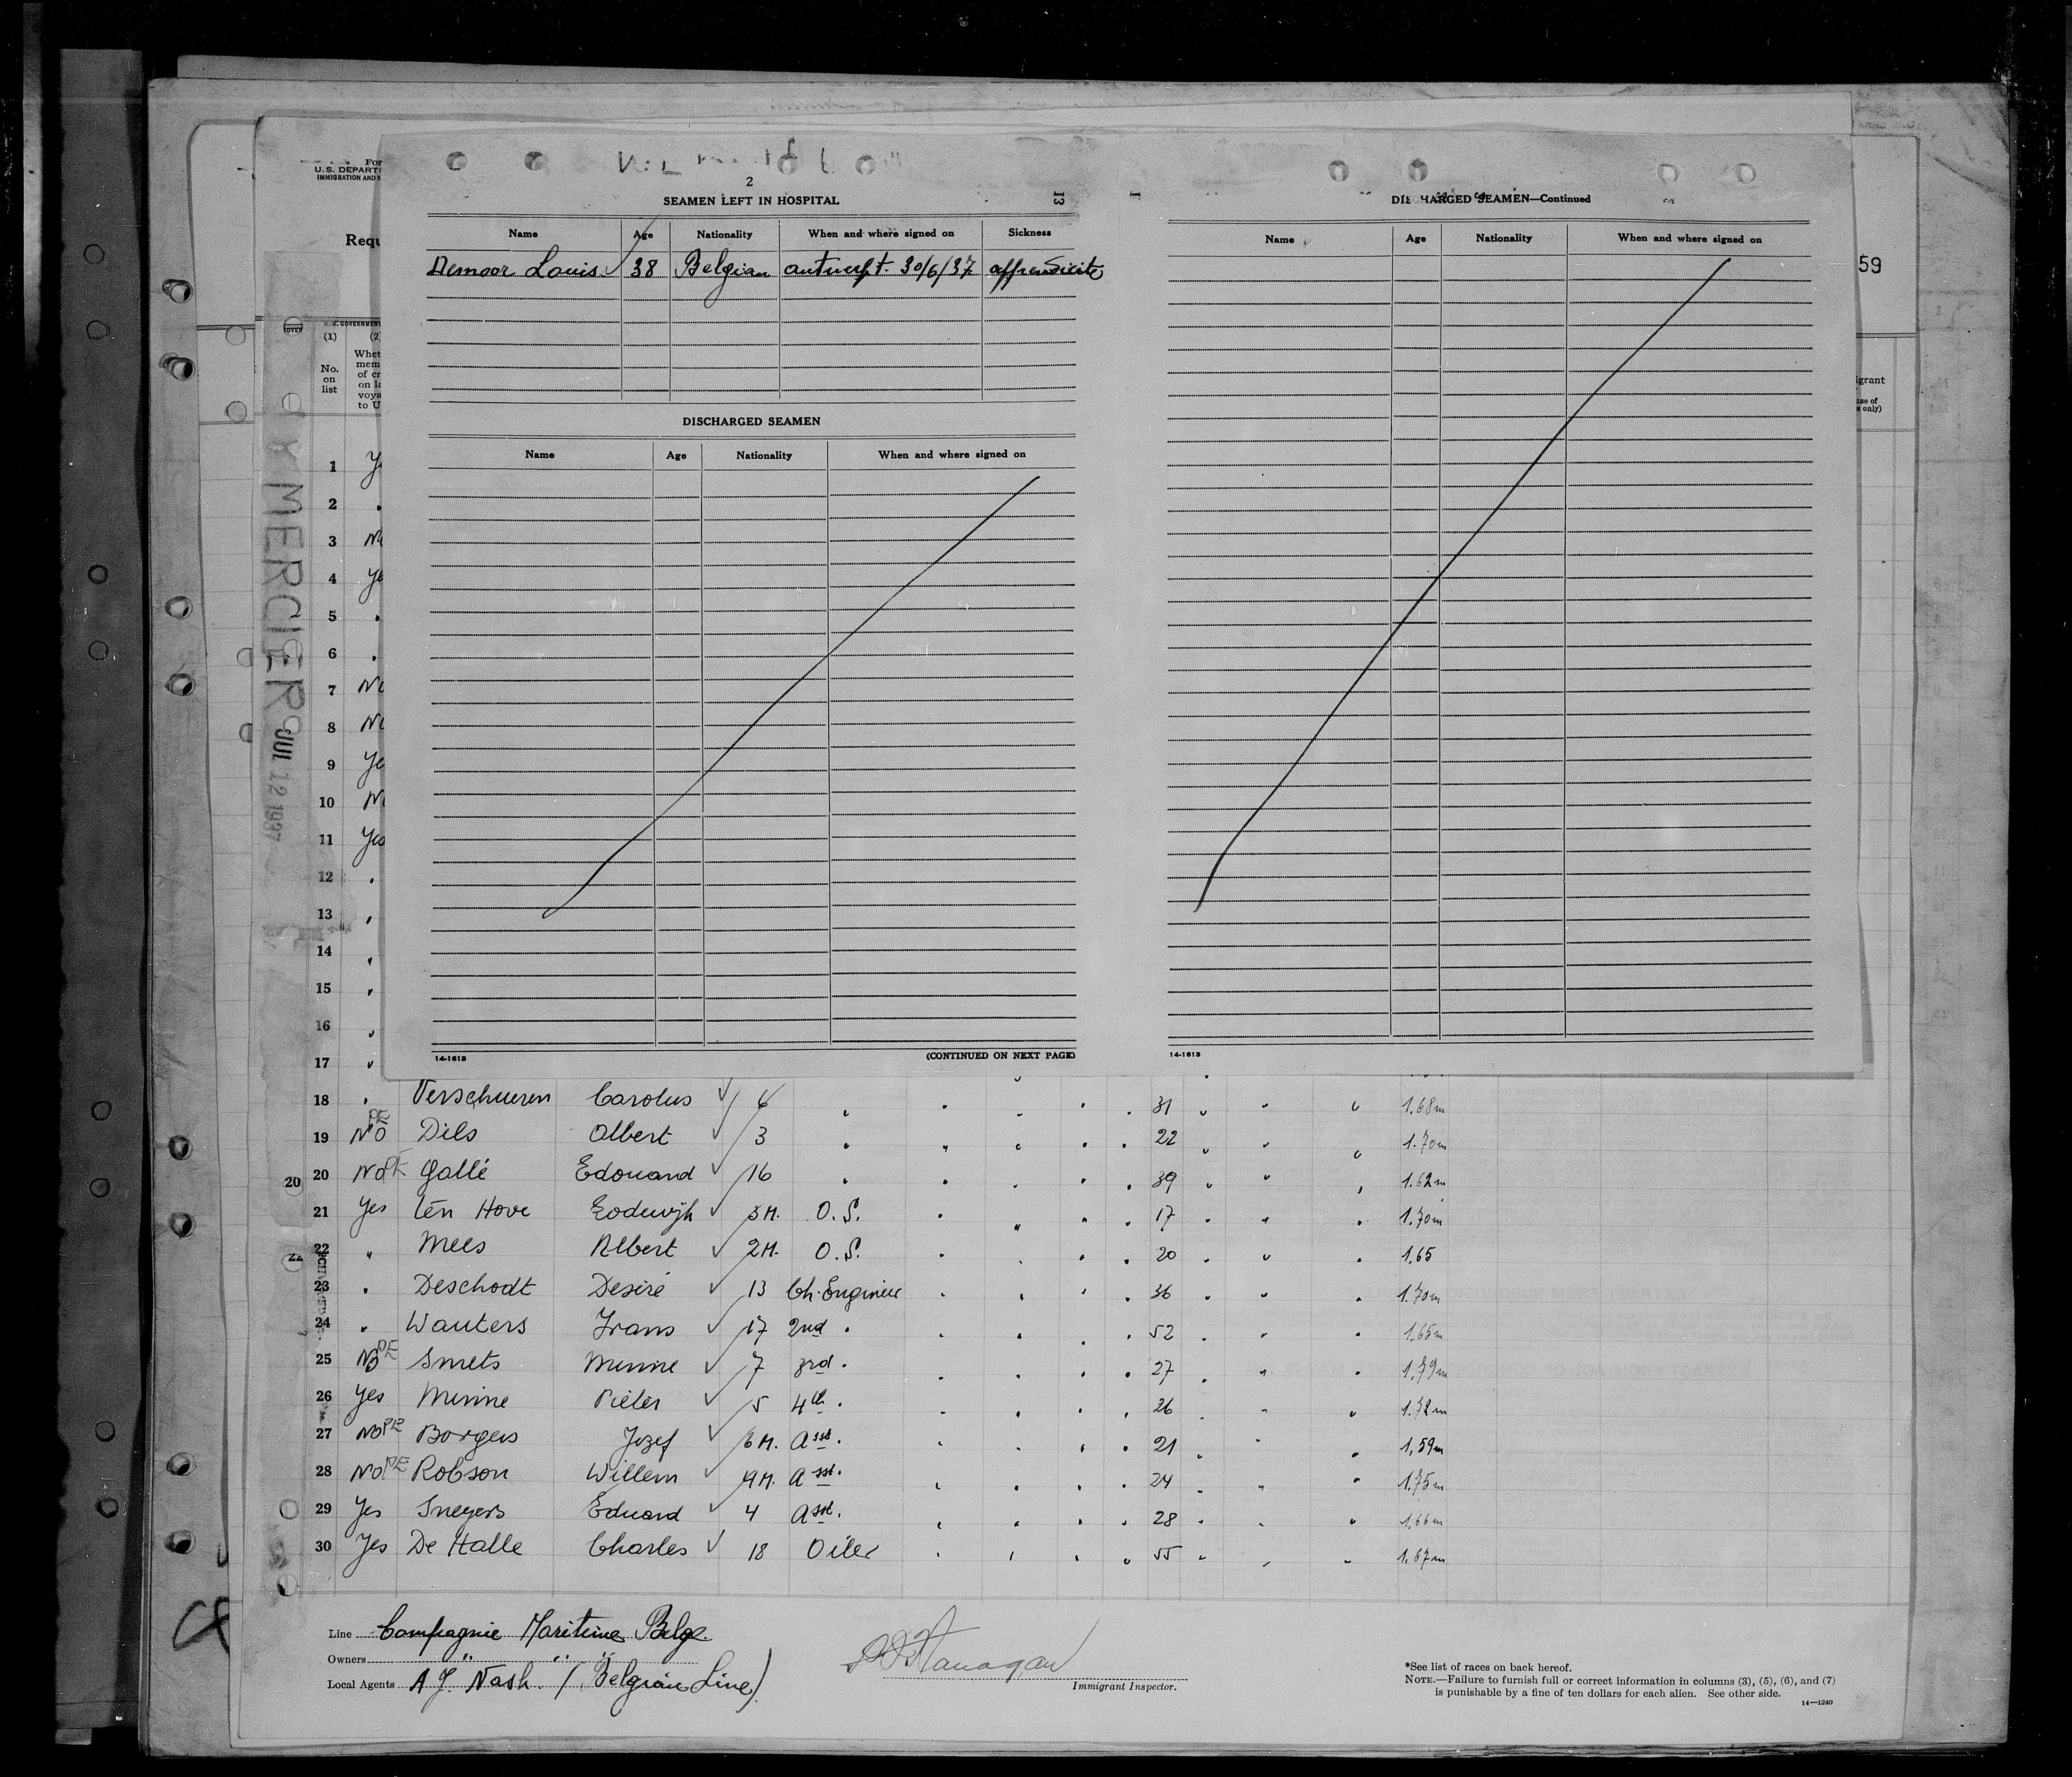 For
U.S. DEPART
IMMIGRATION AND N
Requ
2
SEAMEN LEFT IN HOSPITAL
13
Name Age Nationality When and where signed on Sickness
Demoor Louis 38 Belgian antwerpt. 30/6/37 appendicite
DISCHARGED SEAMEN
Name Age Nationality When and where signed on
14-1613 (CONTINUED ON NEXT PAGE)
DISCHARGED SEAMEN—Continued
Name Age Nationality When and where signed on
14-1613
59
igrant
use of
s only)
(1) (2
No. on list
Whet
mem
of cr
on la
voya
to U
MERCIER
JUL 12 1937
1 Ye
2 "
3 No
4 Ye
5 "
6 "
7 No
8 No
9 Ye
10 No
11 Yes
12 "
13 "
14 "
15 "
16 "
17 "
18 " Verschueren Carolus ✓ 6 " " " " " 31 " " " 1.68m
19 No PE Dils Albert ✓ 3 " " " " " 22 " " " 1.70m
20 20 No PE Gallé Edouard ✓ 16 " " " " " 39 " " " 1.62m
21 Yes Ten Hove Lodewijk ✓ 3M. O.S. " " " " 17 " " " 1.70m
22 22 " Mees Albert ✓ 2M. O.S. " " " " 20 " " " 1,65
23 " Deschodt Desiré ✓ 13 Ch. Engineer " " " " 36 " " " 1.70m
24 " Wauters Frans ✓ 17 2nd " " " " " 52 " " " 1.65m
25 No PE Smets Minne ✓ 7 3rd " " " " " 27 " " " 1,79m
26 Yes Minne Pieter ✓ 5 4th " " " " " 26 " " " 1.72m
27 No PE Borgers Jozef ✓ 6M. Asst. " " " " 21 " " " 1,59m
28 No PE Robson Willem ✓ 4M. Asst. " " " " 24 " " " 1.75m
29 Yes Sneyers Eduard ✓ 4 Asst. " " " " 28 " " " 1,66m
30 Yes De Halle Charles ✓ 18 Oiler " " " " 55 " " " 1.67m
Line Compagnie Maritime Belge.
Owners " " "
Local Agents A.J. Nash. (Belgian Line)
Immigrant Inspector.
*See list of races on back hereof.
NOTE.—Failure to furnish full or correct information in columns (3), (5), (6), and (7)
is punishable by a fine of ten dollars for each alien. See other side.
14—1240